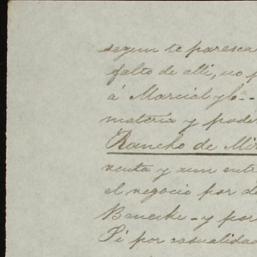 segun te paresca
falto de alli, no p
á Marcial y
materia y pode
Rancho de Mir
venta y aun entr
el negocio por d
y por
Si por casualidad